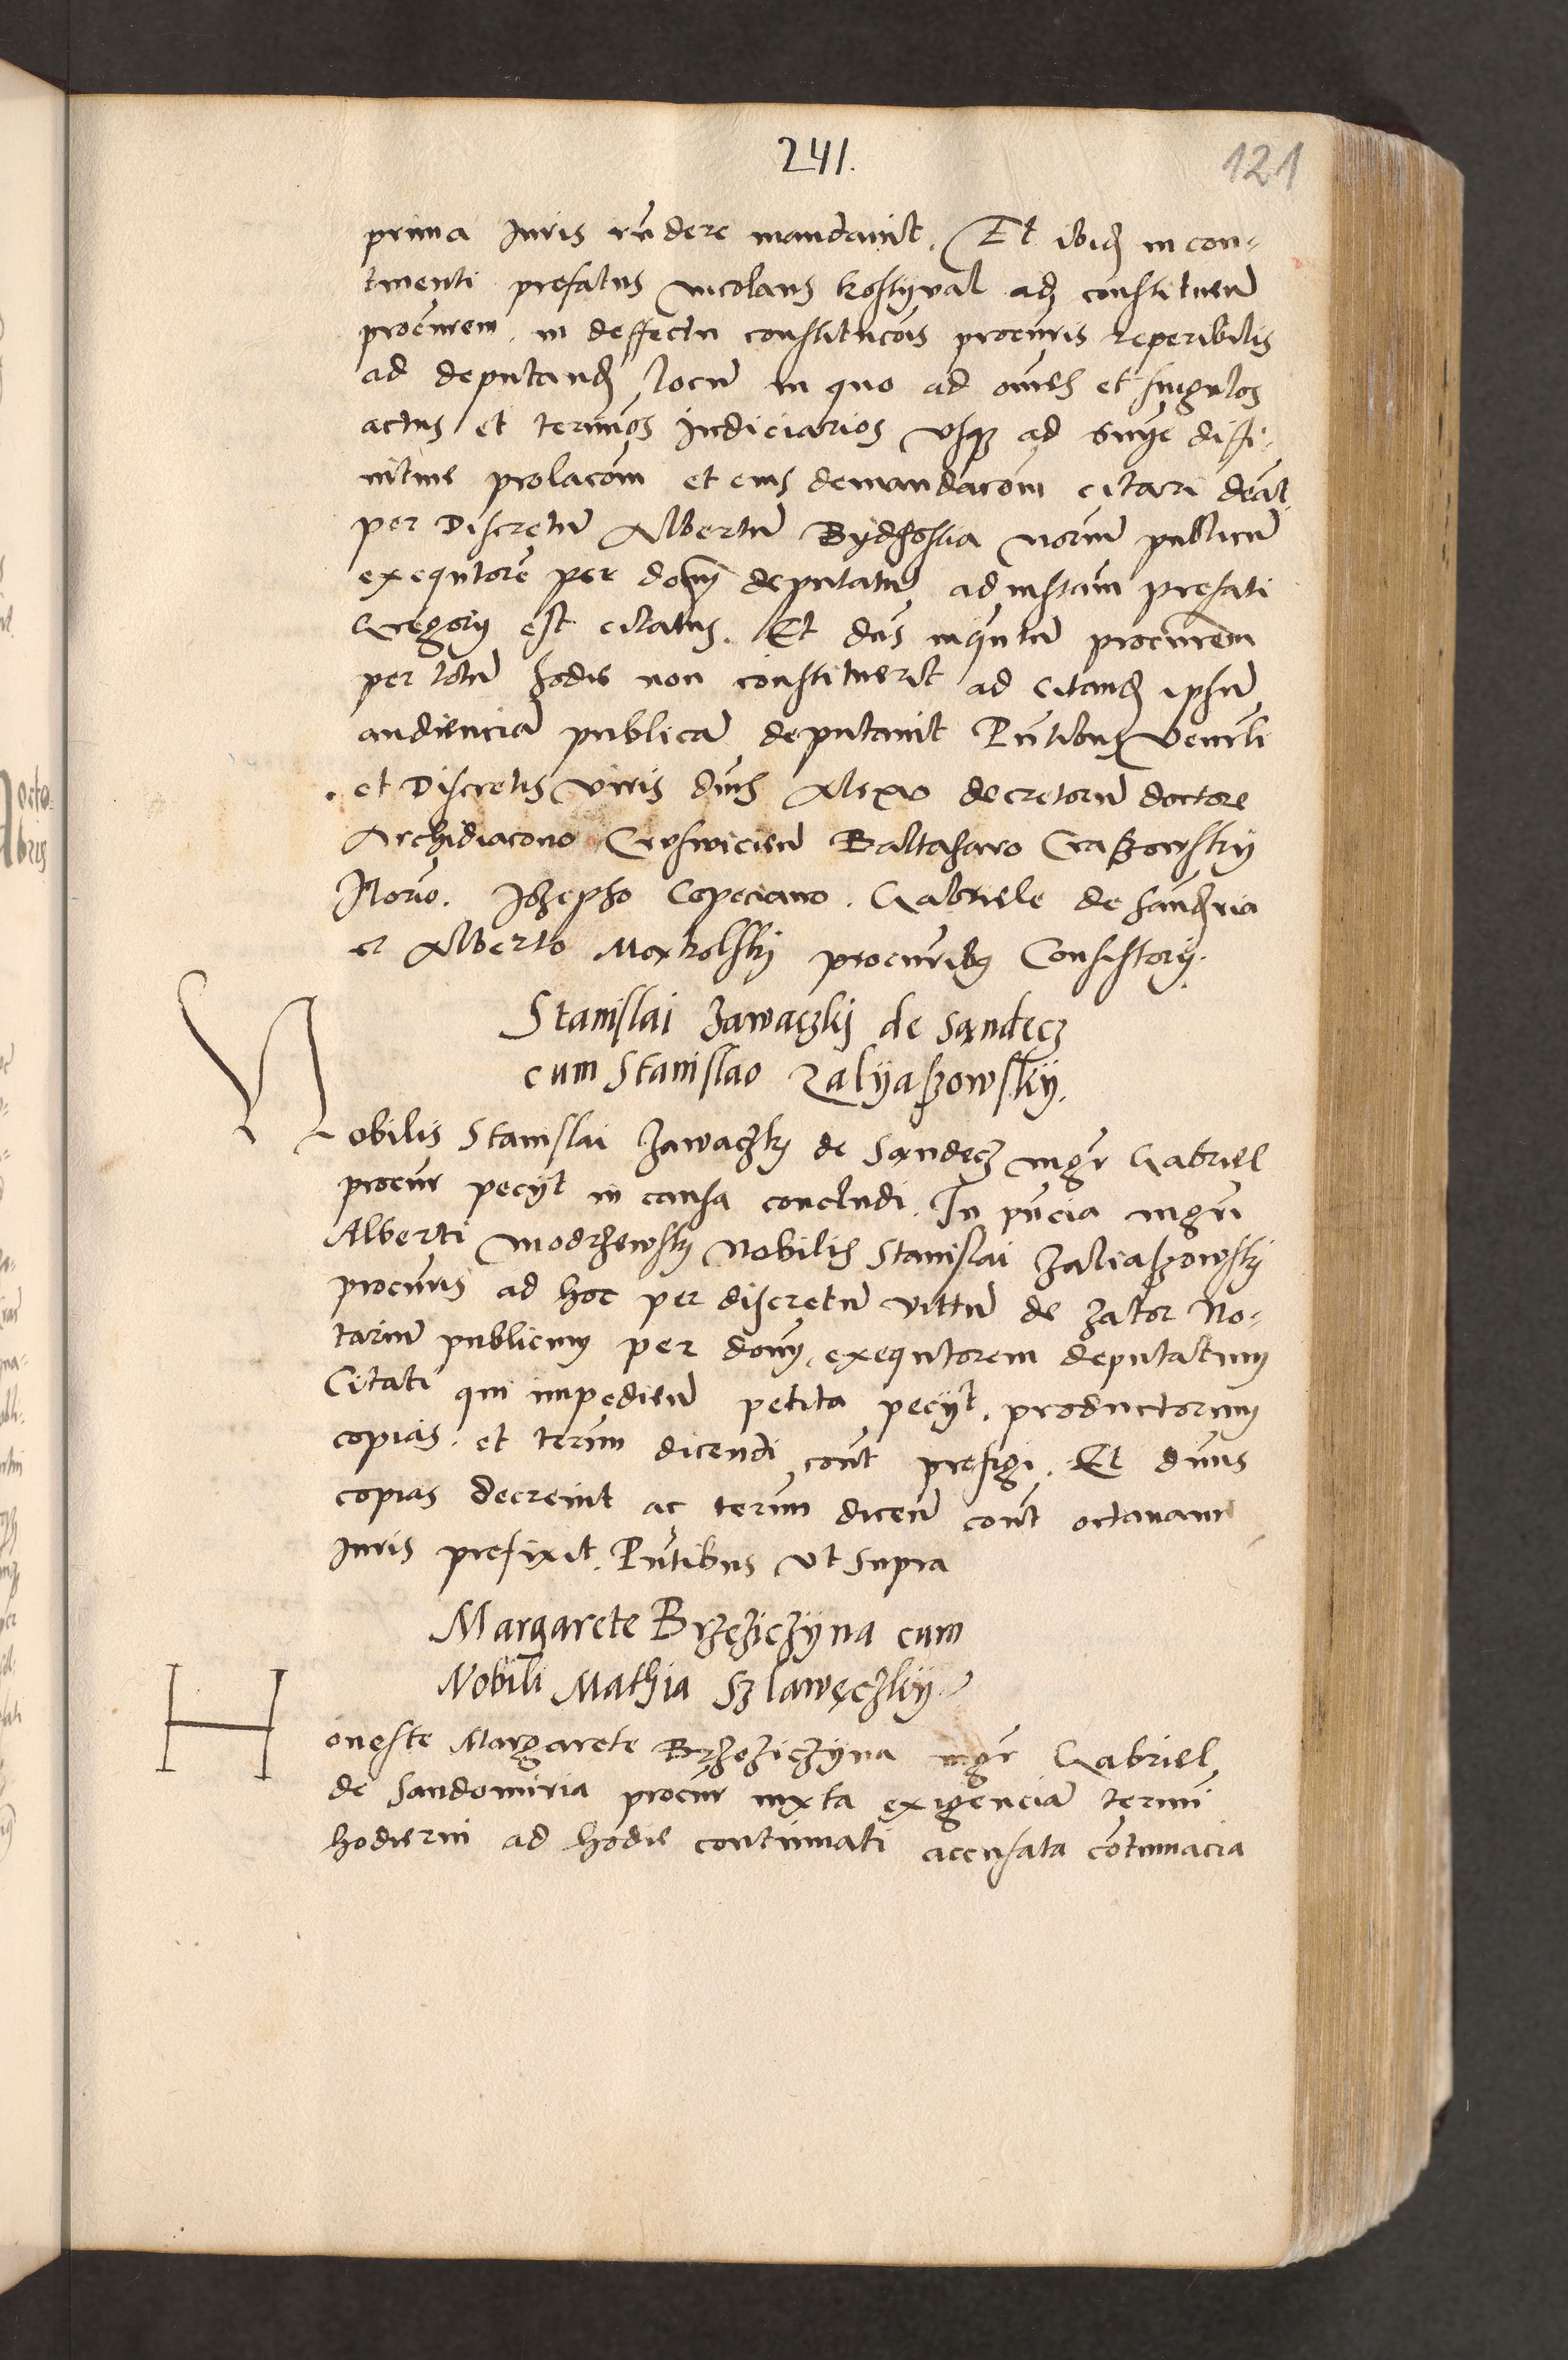 241.
121
prima Iuris rñdere mandavit. Et ibid in con-
tinenti prefatus Nicolaus Kostyval ad constituen̄
procūrem in deffectu constitucōis procūris reperibilis
ad deputand locū in quo ad omēs et singulos
actus et termīos Iudiciarios usq ad Snīe diffi-
nitive prolacōm et eius demandacōm citari deāt
per Discretū Albertū Bydgostia Norīum publicū
exequtorē per donȳ deputatū ad instam prefati
Gregorij est citatus. Et dns inqntū procūrem
per totū hodie non constituerit ad citand ipsū
audienciā publicā deputavit Pñtibus Venerli
et Discretis viris dnīs Alexio decretorū doctore
Archidiacono Crusvicien̄ Baltasaro Craszowsky
Norīo. Iozepho Copeciano. Gabriele de Sandria
et Alberto Mokolsky procūribus Consistorij.
Stanislai Zawaczkj de Sandecz
cum Stanislao Zalyaszowsky.
Nobilis Stanislai Zawaczky de Sandecz mgr Gabriel
procur pecyt in causa concludi. In pñcia mgrī
Alberti Modrzewsky Nobilis Stanislai Zaliaszowsky
procūris ad hoc per discretū Vittū de Zator No-
tariū publicum per dony exequtorem deputatum
Citati qui impedien̄ petita pecyt. productorum
copias. et term̄ dicendi cont̄ prefigi. Et dnūs
copias decrevit ac term̄ dicen̄ cont̄ octavam
Iuris prefixit. Pñtibus ut Supra
Margarete Brzeziczyna cum
Nobili Mathia Szlaweczky
Honeste Margarete Brzeziczyna mgr Gabriel
de Sandomiria procur iuxta exigenciā termī
hodierni ad hodie continuati accusata cōtumacia
octo-
bris